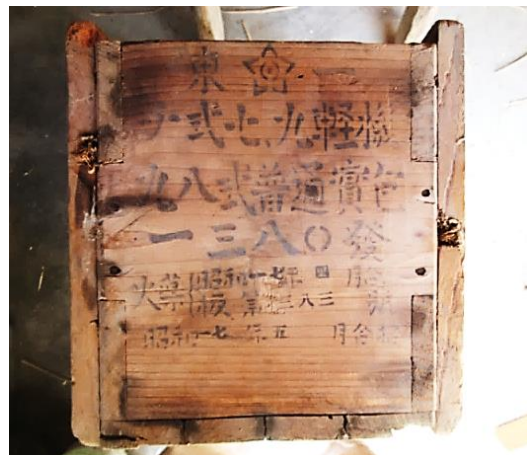 東 一
式七、九軽機
九八式普通實包
一三八〇發
火薬 昭和一七年四月
板 第 三八三號
昭和一七年五月合格